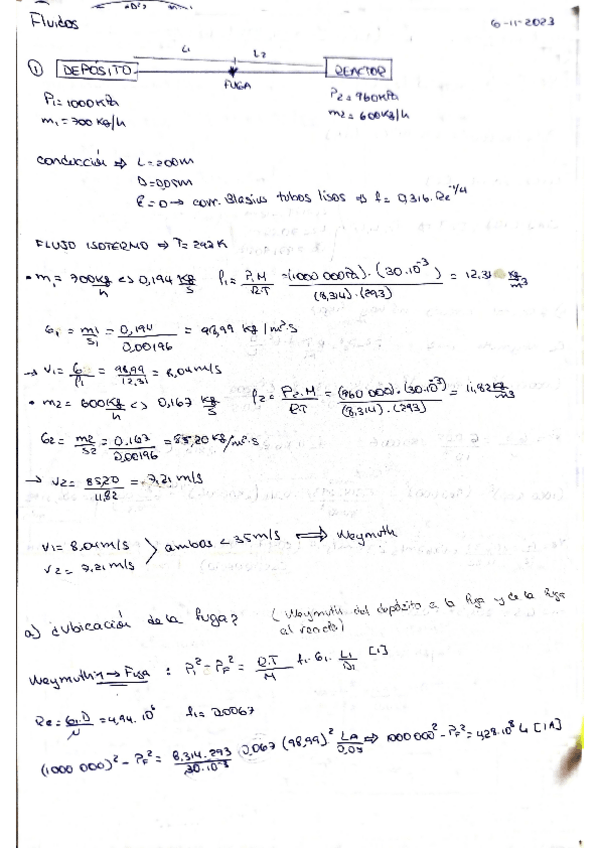 Fluidos
6-11-2023
L1 L2
① DEPÓSITO FUGA REACTOR
P1=1000KPa P2=960KPa
m1=700 Kg/h m2=600Kg/h
conducción ⇒ L=200m
D=0,05m
E=0 → corr. Blasius tubos lisos ⇒ f= 0,316.Re^-1/4
FLUJO ISOTERMO ⇒ T= 293K
• m1= 700Kg/h <> 0,194 Kg/s ρ1= P1.M/R.T = (1000 000Pa).(30.10^-3)/(8,314).(293) = 12,31 Kg/m3
G1 = m1/S1 = 0,194/0,00196 = 98,99 Kg/m².s
→ v1= G/ρ1 = 98,99/12,31 = 8,04m/s
• m2= 600Kg/h <> 0,167 Kg/s ρ2= P2.M/R.T = (960 000).(30.10^-3)/(8,314).(293) = 11,82 Kg/m3
G2= m2/S2 = 0,167/0,00196 = 85,20 Kg/m².s
→ v2= 85,20/11,82 = 7,21 m/s
v1= 8,04m/s
v2= 7,21 m/s
ambas < 35m/s ⟹ Weymuth
a) ¿Ubicación de la fuga? (Weymuth del depósito a la fuga y de la fuga
al reactor)
Weymuth 1→Fuga : P1²-PF² = R.T/M f1.G1. L1/D1 [1]
Re= G1.D/μ = 4,94.10⁵ f1= 0,0067
(1000 000)² - PF² = 8,314.293/30.10^-3 0,067 (98,99)² LA/0,05 ⇒ 1000 000² - PF² = 4,28.10⁸ L1 [1A]